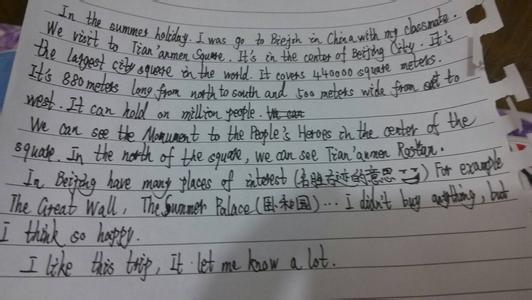 In the summer holiday. I was go to Biejih in China with my classmate.
We visit to Tian'anmen Square. It's in the center of Beijing City. It's
the largest city square in the world. It covers 440000 square meters.
It's 880 meters long from north to south and 500 meters wide from east to
west. It can hold on million people.
We can see the Monument to the People's Heroes in the center of the
square. In the north of the square, we can see Tian'anmen Rostrum.
In Beijing have many places of interest (名胜古迹的意思) For example
The Great Wall, The Summer Palace ... I didn't buy anything, but
I think so happy.
I like this trip, It let me know a lot.